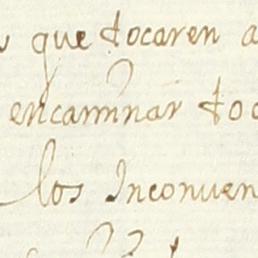 que tocaren a
encaminar to
los Inconuen